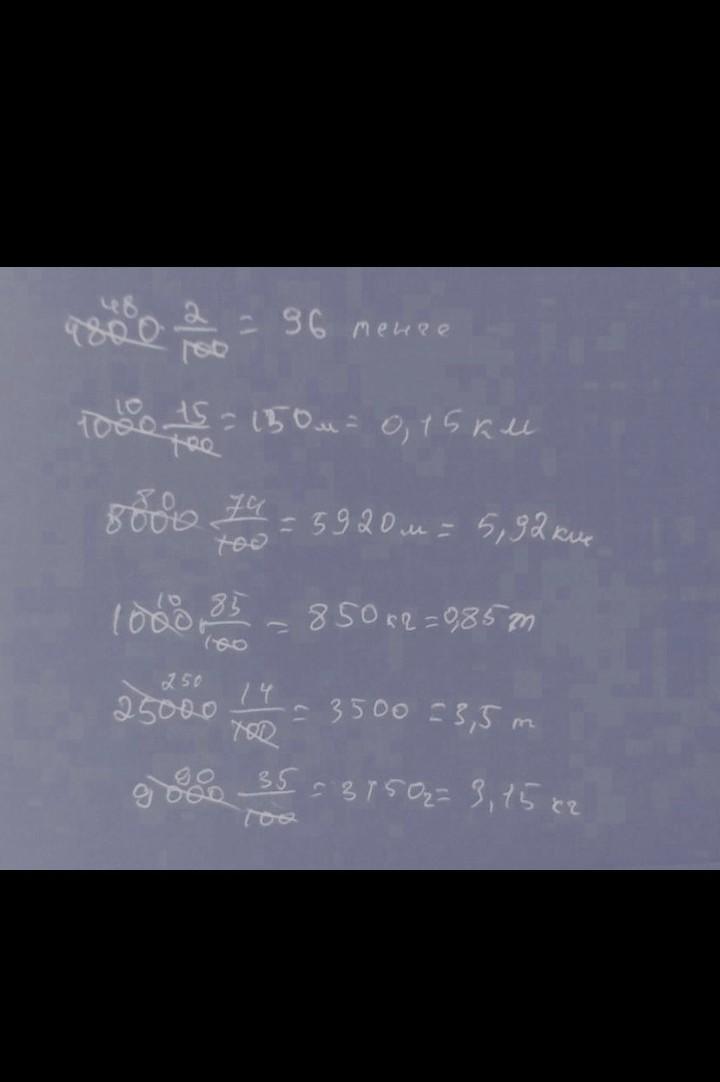 48
4800 · 2/100 = 96 тенге
10
1000 · 15/100 = 150 м = 0,15 км
80
8000 · 74/100 = 5920 м = 5,92 км
10
1000 · 85/100 = 850 кг = 0,85 т
250
25000 · 14/100 = 3500 = 3,5 т
90
9000 · 35/100 = 3150 г = 3,15 кг